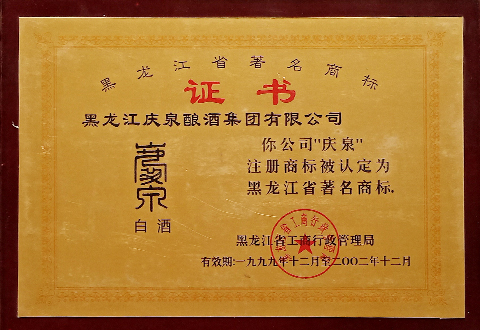 黑龙江省著名商标
证书
黑龙江庆泉酿酒集团有限公司
你公司"庆泉"
注册商标被认定为
黑龙江省著名商标,
白酒
黑龙江省工商行政管理局
有效期:一九九九年十二月至二〇〇二年十二月